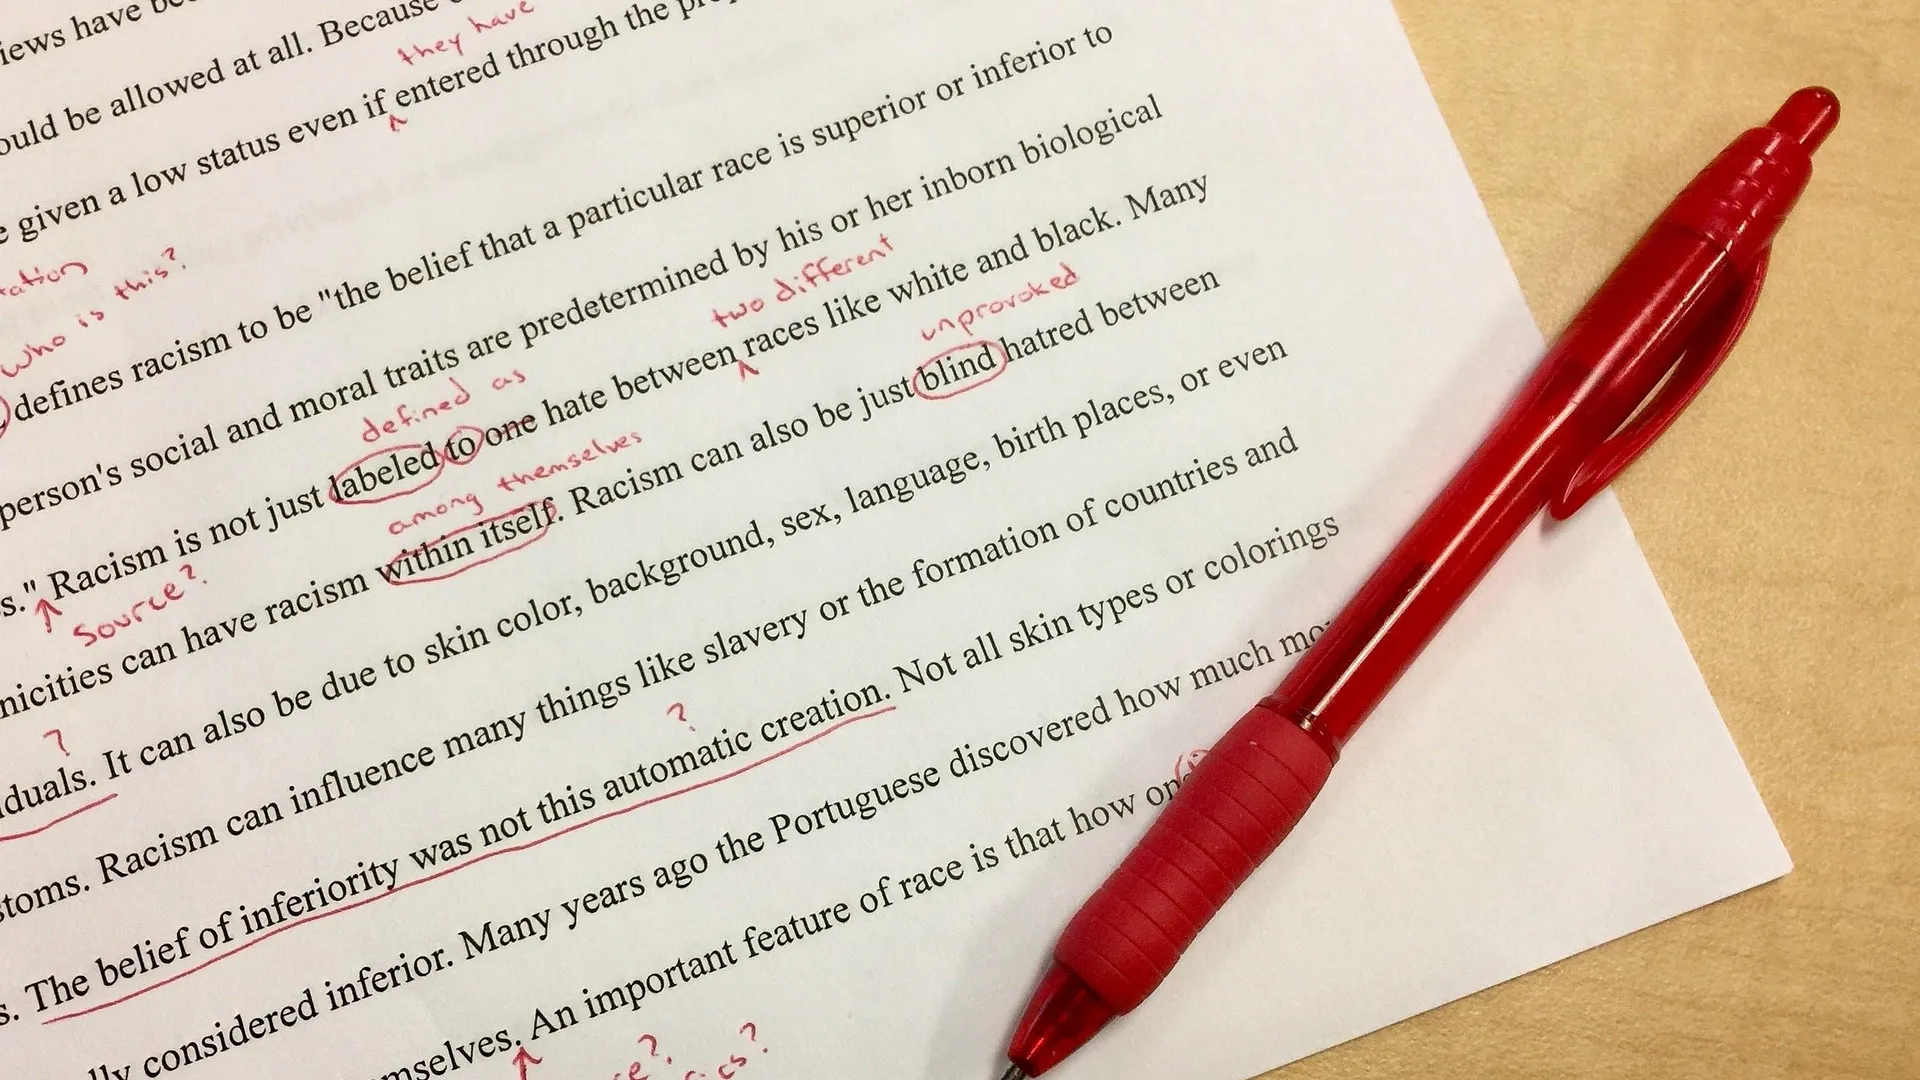 iews have
ould be allowed at all. Because
they have
e given a low status even if entered through the
tation
who is this?
defines racism to be "the belief that a particular race is superior or inferior to
person's social and moral traits are predetermined by his or her inborn biological
defined as
two different
s." Racism is not just labeled to one hate between races like white and black. Many
source?
among themselves
unprovoked
nicities can have racism within itself. Racism can also be just blind hatred between
?
duals. It can also be due to skin color, background, sex, language, birth places, or even
stoms. Racism can influence many things like slavery or the formation of countries and
?
s. The belief of inferiority was not this automatic creation. Not all skin types or colorings
lly considered inferior. Many years ago the Portuguese discovered how much
mselves. An important feature of race is that how